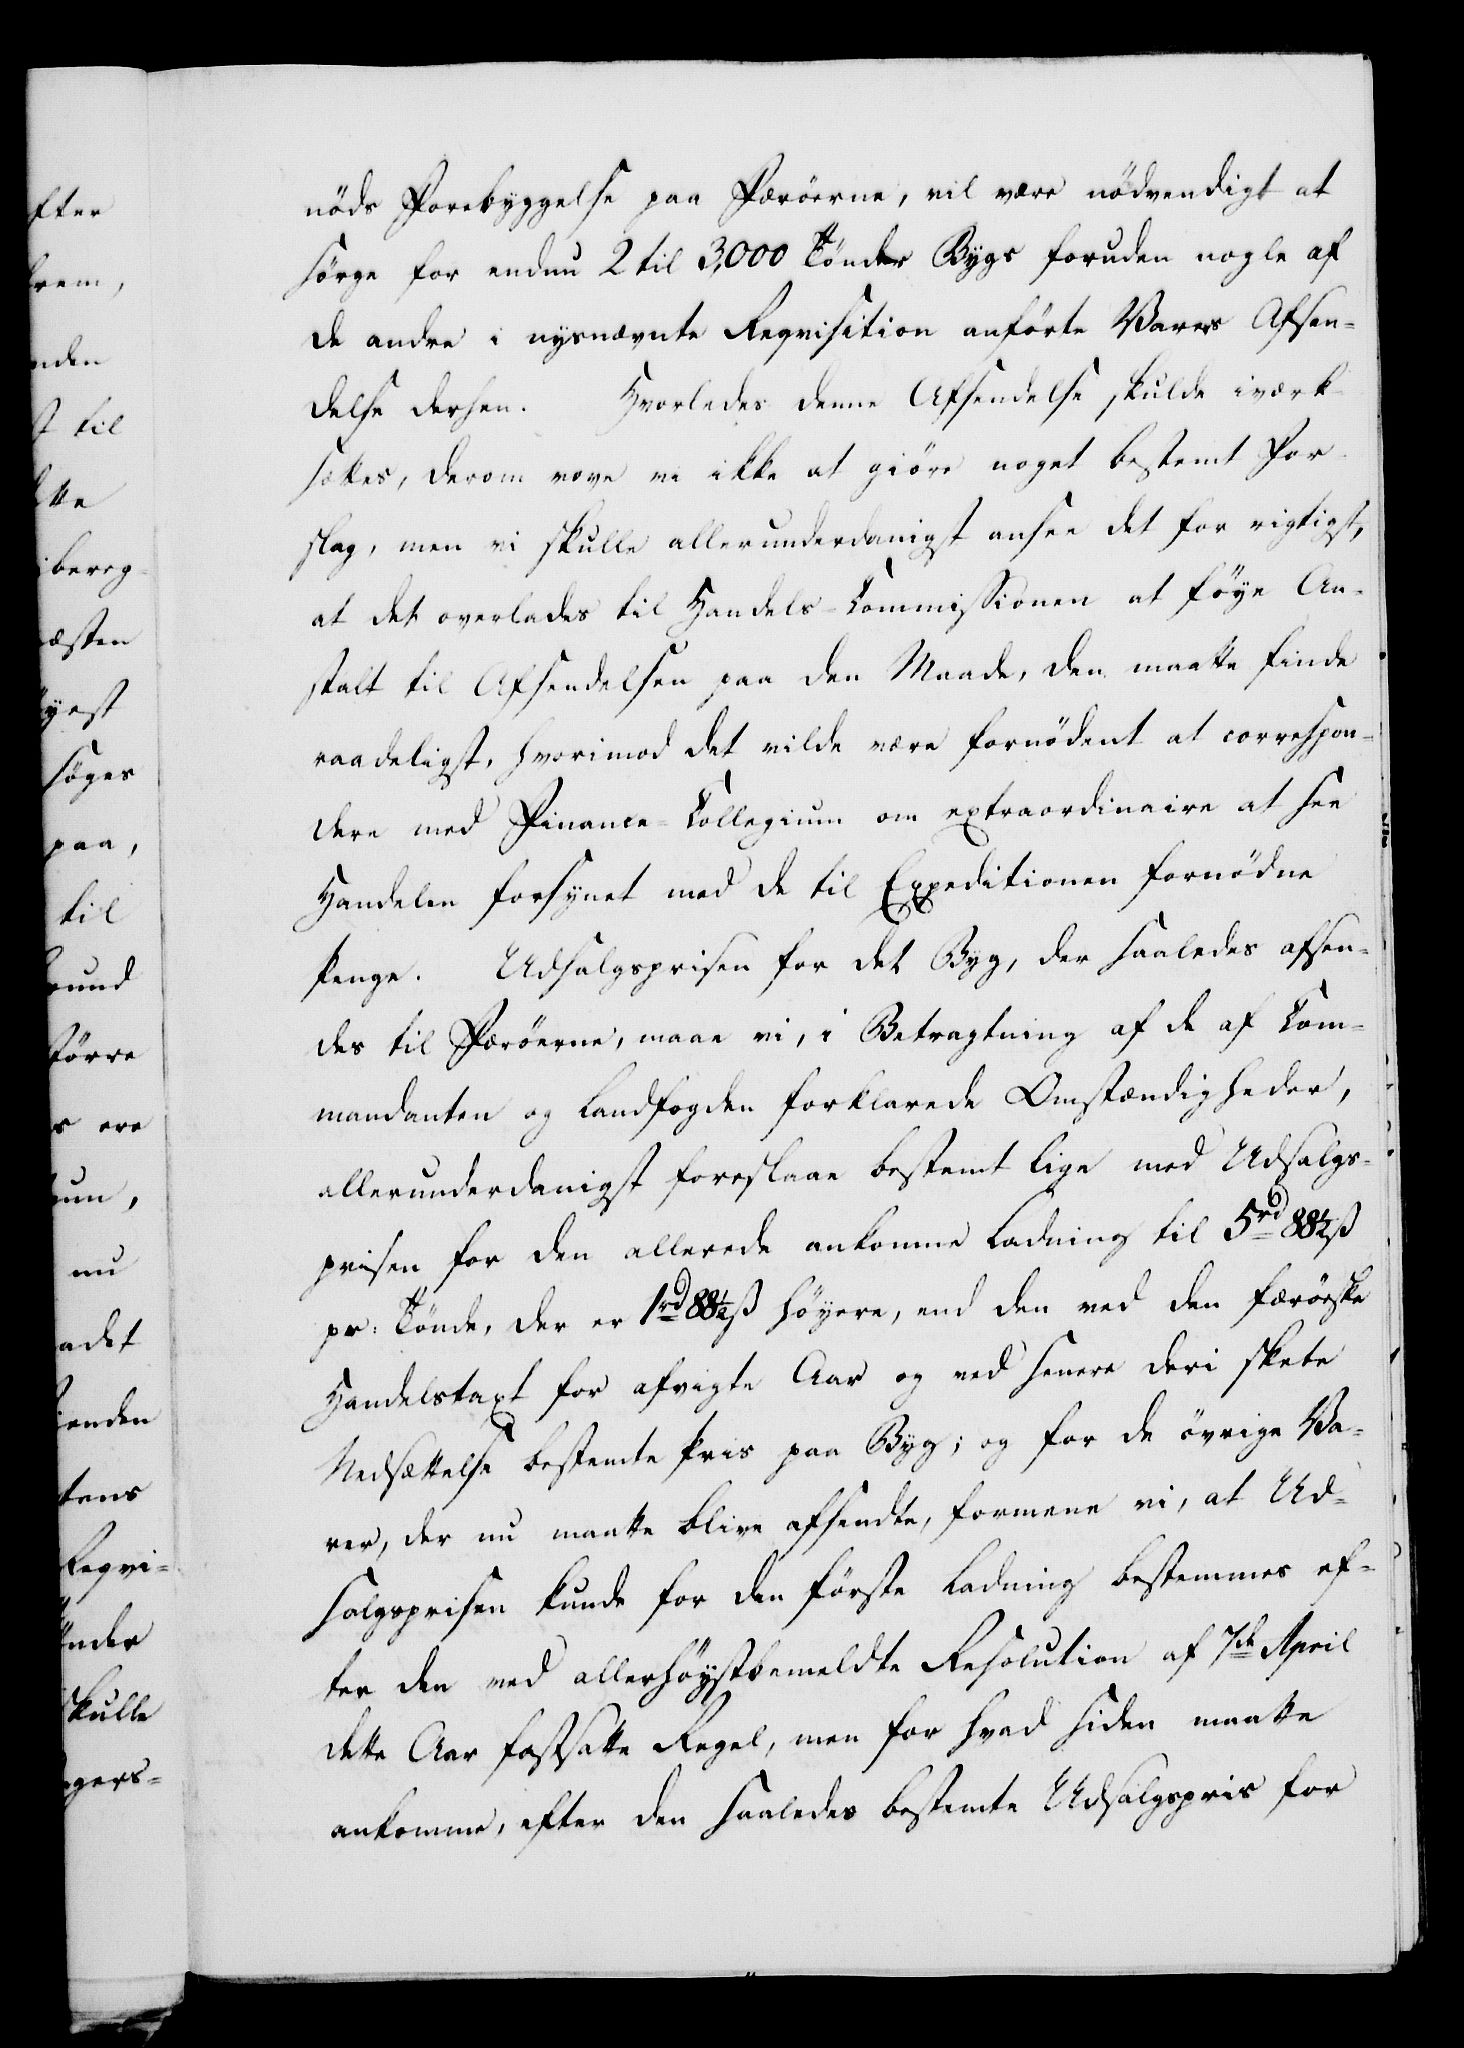 nöds Forebyggelse paa Færöerne, vil være nödvendigt at
sörge for endnu 2 til 3,000 Tönder Bygs foruden nogle af
de andre i nysnævnte Reqvisition anförte Varers Afsen-
delse derhen. Hvorledes denne Afsendelse skulde iværk-
sættes, derom vove vi ikke at giöre noget bestemt For-
slag, men vi skulle allerunderdanigst ansee det for rigtigst,
at det overlades til Handels-Commissionen at föye An-
stalt til Afsendelsen paa den Maade, den maatte finde
raadeligst, hvorimod det vilde være fornödent at correspon-
dere med Finance-Collegium om extraordinaire at see
Handelen forsynet med de til Expeditionen fornödne
Penge. Udsalgsprisen for det Byg, der saaledes afsen-
des til Færöerne, maae vi, i Betragtning af de af Com-
mandanten og Landfogden forklarede Omstændigheder,
allerunderdanigst foreslaae bestemt lige med Udsalgs-
prisen for den allerede ankomne Ladning til 5rd 88½ß
pr: Tönde, der er 1rd 88½ß höyere, end den ved den færöeske
Handelstaxt for afvigte Aar og ved senere deri skete
Nedsættelse bestemte Pris paa Byg; og for de övrige Va-
rer, der nu maatte blive afsendte, formene vi, at Ud-
salgsprisen kunde for den förste Ladning bestemmes ef-
ter den ved allerhöystbemeldte Resolution af 7de April
dette Aar fastsatte Regel, men for hvad siden maatte
ankomme, efter den saaledes bestemte Udsalgspris for
fter
nden
til
bereg-
æsten
yest
söges
paa,
til
större
ere
nu
adet
enden
tens
Reqvi-
skulle